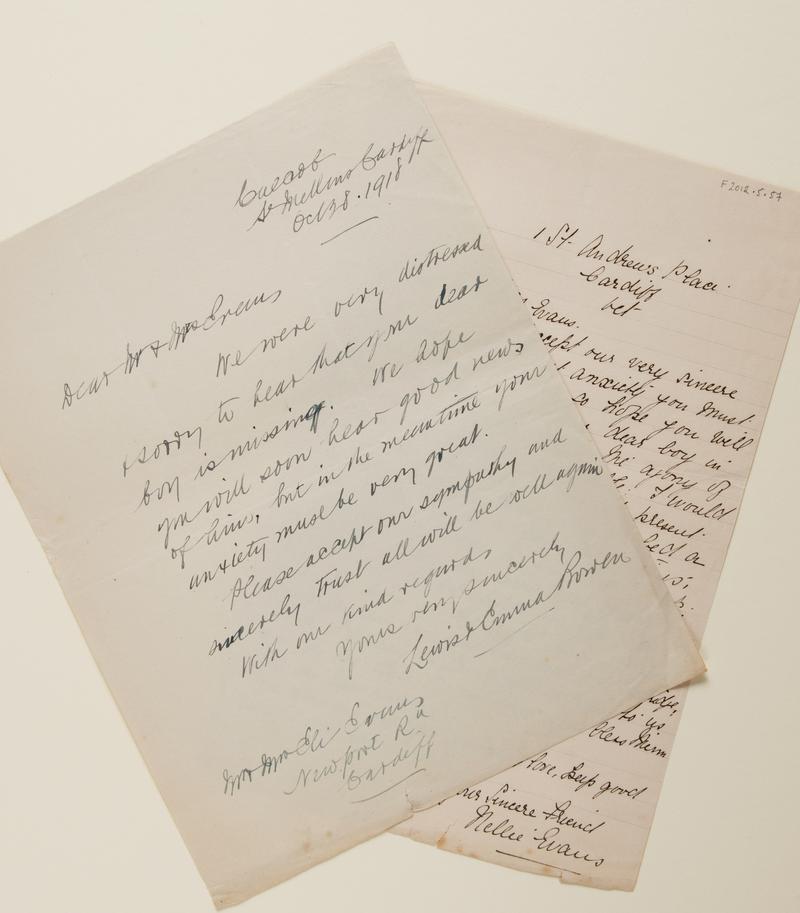 St Mellons Cardiff
Oct 28. 1918
Dear Mr & Mrs Evans
We were very distressed
& sorry to hear that your dear
boy is missing. We hope
you will soon hear good news
of him, but in the meantime your
anxiety must be very great.
Please accept our sympathy and
sincerely trust all will be well again
With our kind regards
Yours very sincerely
Lewis & Emma Bowen
Mr & Mrs Eli Evans
Newport Rd
Cardiff
F2012.5.57
1 St. Andrews Place.
Cardiff
Oct
Evans.
accept our very sincere
anxiety you must
so hope you will
dear boy in
the agony of
I would
present.
to us
bless them
love, keep good
your Sincere Friend
Nellie Evans